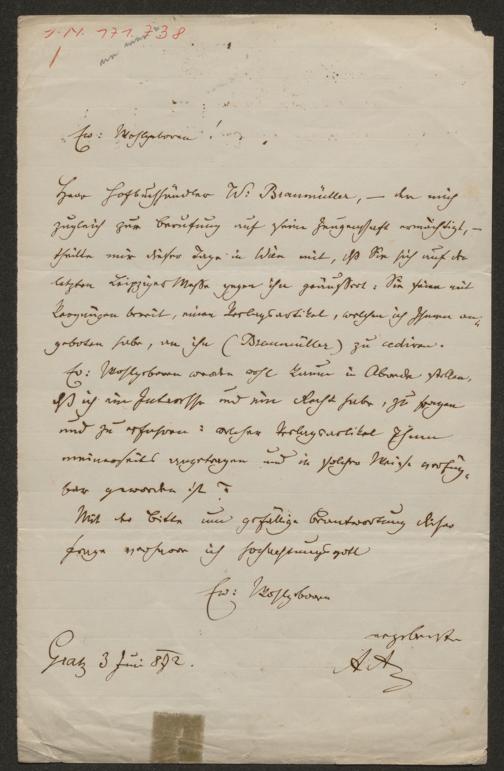 I.N. 171.738
Ew: Wohlgeboren!
Herr Hofbuchhändler W: Braumüller, — der mich
zugleich zur Berufung auf seine Zeugenschaft ermächtigt, —
theilte mir dieser Tage in Wien mit, dß Sie sich auf der
letzten Leipziger Messe gegen ihn geäußert: Sie seien mit
Vergnügen bereit, einen Verlagsartikel, welchen ich Ihnen an-
geboten habe, an ihn (Braumüller) zu cediren.
Ew: Wohlgeboren werden wohl kaum in Abrede stellen,
dß ich ein Interesse und ein Recht habe, zu fragen
und zu erfahren: welcher Verlagsartikel Ihnen
meinerseits angetragen und in solcher Weise verfüg-
bar geworden ist?
Mit der Bitte um gefällige Beantwortung dieser
Frage verharre ich hochachtungsvoll
Ew: Wohlgeboren
ergebenster
Gratz 3 Juni 872.
AA